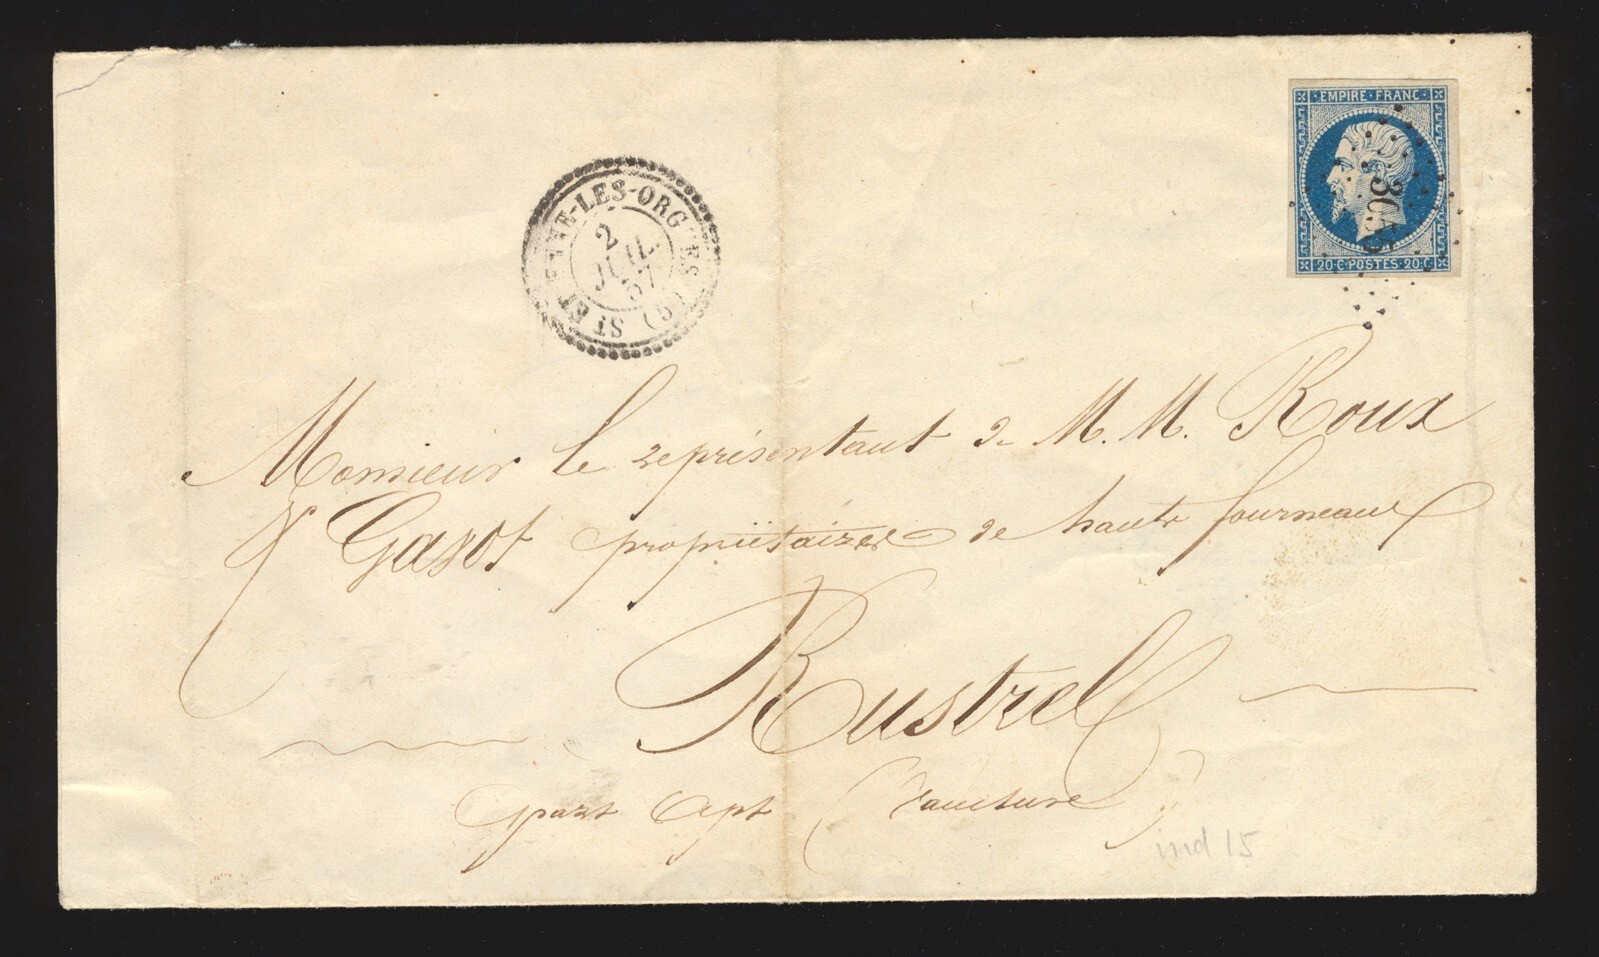 EMPIRE·FRANC·
20·C·POSTES·20·C·
ST ETIENNE-LES-ORGUES (6)
2
JUIL.
57
Monsieur le représentant de M. M. Roux
& Gazot propriëtaires de hauts fourneaux
Rustrel
part Apt (Vaucluse)
ind 15